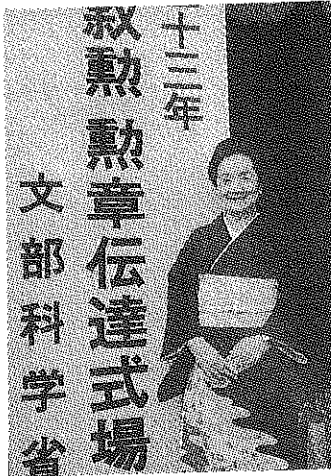 十三年
叙勲 勲章伝達式場
文部科学省